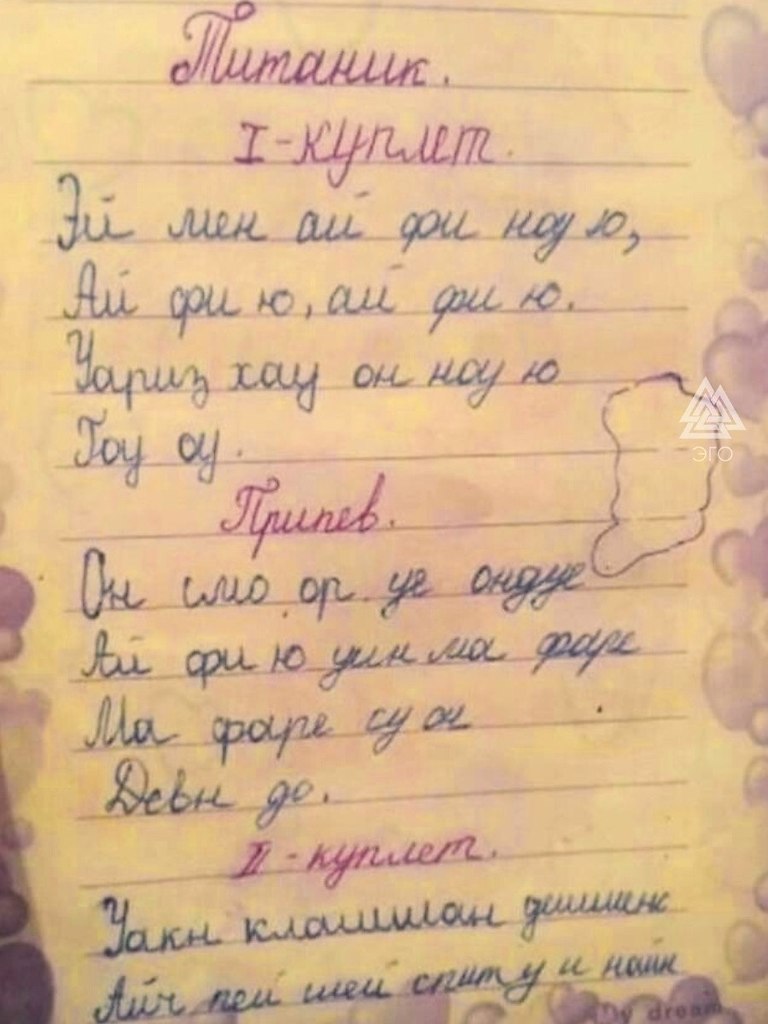 Титаник.
I-куплет.
Эй мен ай фи ноу ю,
Ай фи ю, ай фи ю.
Уариз хау он ноу ю
Гоу оу.
ЭГО
Припев.
Он смо ор уе ондуе
Ай фи ю уин ма фаре
Ма фаре су он
Девн до.
II-куплет.
Уакн клашиан
Айч пей шей спит у и найн
My dream